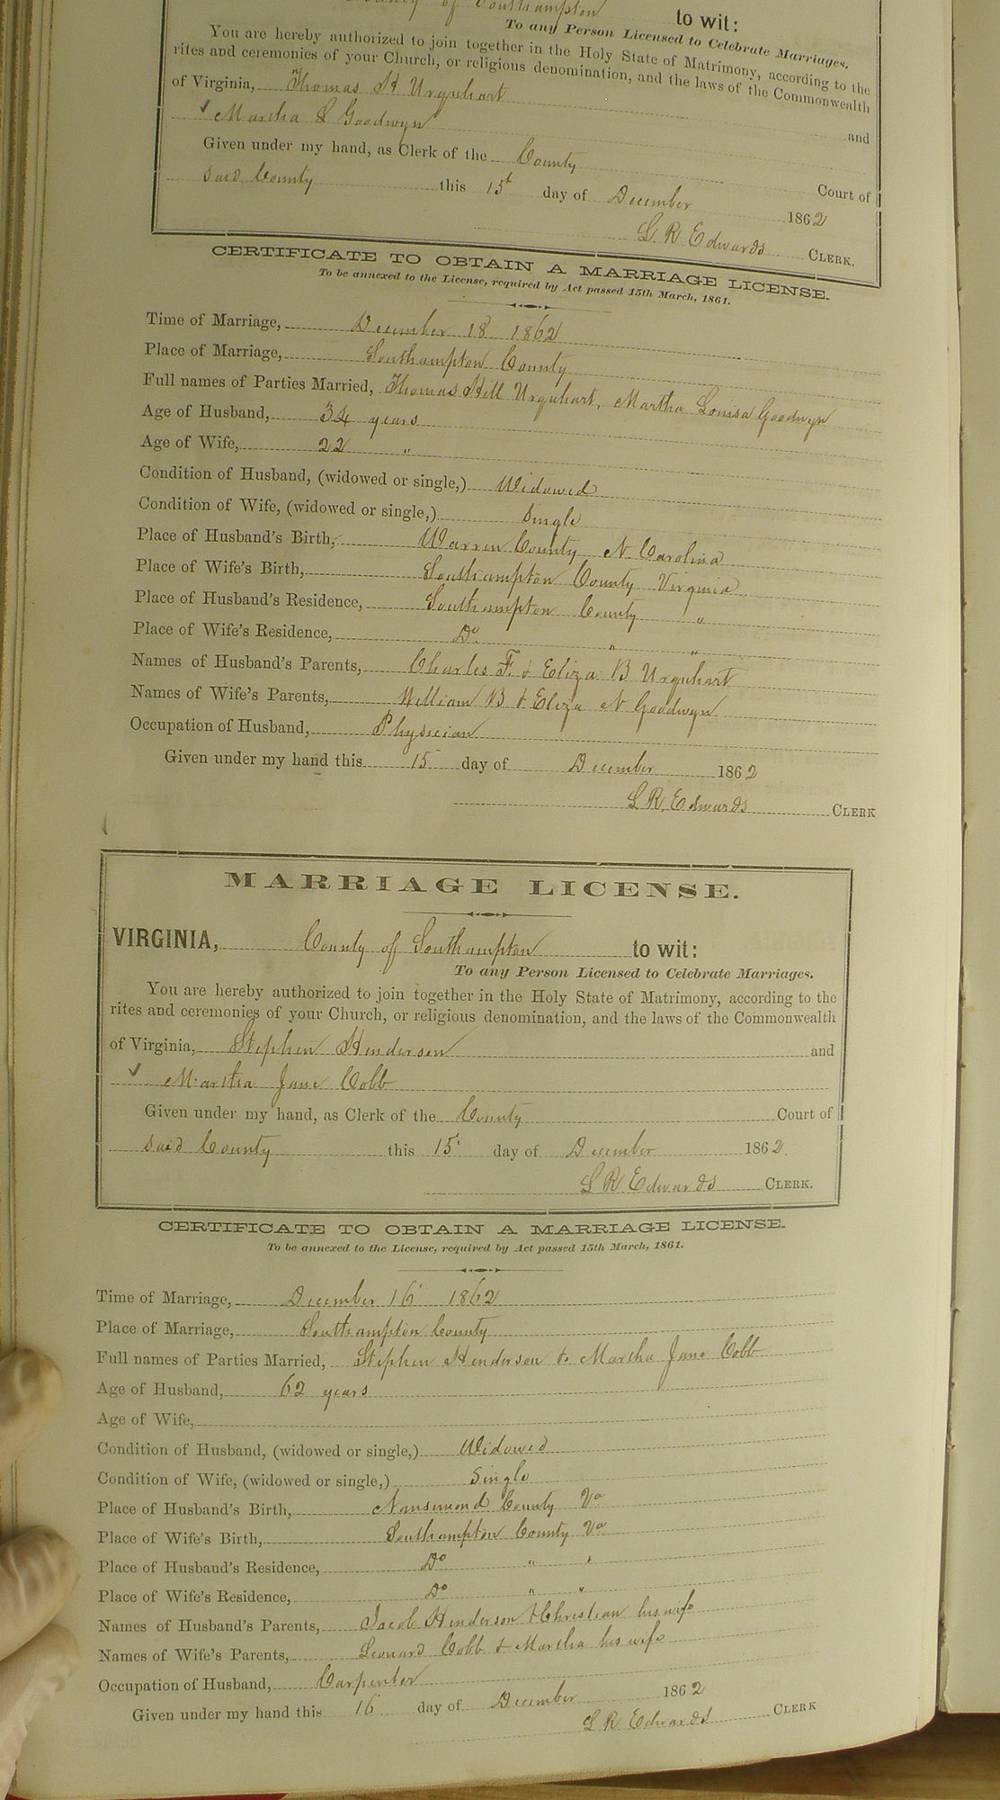 County of Southampton to wit:
To any Person Licensed to Celebrate Marriages.
You are hereby authorized to join together in the Holy State of Matrimony, according to the
rites and ceremonies of your Church, or religious denomination, and the laws of the Commonwealth
of Virginia, Thomas H Urquhart and
✓ Martha L Goodwyn
Given under my hand, as Clerk of the County Court of
said County this 15t day of December 1862
L R Edwards CLERK.
CERTIFICATE TO OBTAIN A MARRIAGE LICENSE.
To be annexed to the License, required by Act passed 15th March, 1861.
Time of Marriage, December 18 1862
Place of Marriage, Southampton County
Full names of Parties Married, Thomas Hill Urquhart, Martha Louisa Goodwyn
Age of Husband, 34 years
Age of Wife, 22 "
Condition of Husband, (widowed or single,) Widowed
Condition of Wife, (widowed or single,) Single
Place of Husband's Birth, Warren County N Carolina
Place of Wife's Birth, Southampton County Virginia
Place of Husband's Residence, Southampton County "
Place of Wife's Residence, Do " "
Names of Husband's Parents, Charles F. & Eliza B Urquhart
Names of Wife's Parents, William B & Eliza N Goodwyn
Occupation of Husband, Physician
Given under my hand this 15 day of December 1862
L R. Edwards CLERK
MARRIAGE LICENSE.
VIRGINIA, County of Southampton to wit:
To any Person Licensed to Celebrate Marriages.
You are hereby authorized to join together in the Holy State of Matrimony, according to the
rites and ceremonies of your Church, or religious denomination, and the laws of the Commonwealth
of Virginia, Stephen Henderson and
✓ Martha Jane Cobb
Given under my hand, as Clerk of the County Court of
said County this 15t day of December 1862.
L R Edwards CLERK.
CERTIFICATE TO OBTAIN A MARRIAGE LICENSE.
To be annexed to the License, required by Act passed 15th March, 1861.
Time of Marriage, December 16 1862
Place of Marriage, Southampton County
Full names of Parties Married, Stephen Henderson to Martha Jane Cobb
Age of Husband, 62 years
Age of Wife,
Condition of Husband, (widowed or single,) Widowed
Condition of Wife, (widowed or single,) Single
Place of Husband's Birth, Nansemond County Va
Place of Wife's Birth, Southampton County Va
Place of Husband's Residence, Do " "
Place of Wife's Residence, Do " "
Names of Husband's Parents, Jacob Henderson & Christian his wife
Names of Wife's Parents, Leonard Cobb & Martha his wife
Occupation of Husband, Carpenter
Given under my hand this 16 day of December 1862
L R Edwards CLERK